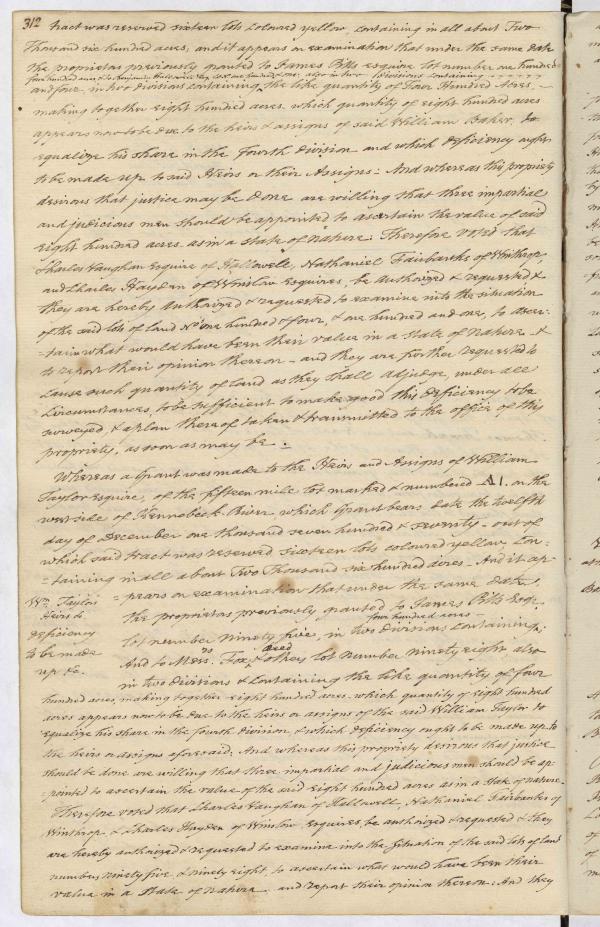 312 tract was reserved sixteen lots coloured yellow, containing in all about Two
Thousand six hundred acres, and it appears on examination that under the same date
the proprietors previously granted to James Pitts esquire lot number one hundred
four hundred acres & to Benjamin Hallowell Esq lot one hundred & one, also in two Divisions containing
and four, in two divisions containing the like quantity of Four Hundred Acres,
making together eight hundred acres, which quantity of eight hundred acres
appears now to be due to the heirs & assigns of said William Baker, to
equalize his share in the Fourth division and which deficiency ought
to be made up to said Heirs or their Assigns - And whereas this propriety
desirous that justice may be done are willing that three impartial
and judicious men should be appointed to ascertain the value of said
eight hundred acres as in a state of nature: Therefore Voted that
Charles Vaughan Esquire of Hallowell, Nathaniel Fairbanks of Winthrop
and Charles Hayden of Winslow Esquires, be Authorized & requested &
they are hereby Authorized & requested to examine into the situation
of the said lots of land No. one hundred & four, & one hundred and one, to ascer-
=tain what would have been their value in a state of Nature - &
to report their opinion thereon - and they are further requested to
cause such quantity of land as they shall adjudge, under all
Circumstances, to be sufficient to make good this deficiency to be
surveyed, & a plan thereof taken & transmitted to the office of this
propriety, as soon as may be -.
Whereas a Grant was made to the Heirs and Assigns of William
Taylor esquire, of the fifteen mile lot marked & numbered A1. on the
west side of Kennebeck River which grant bears date the twelfth
day of December one thousand seven hundred & seventy - out of
which said tract was reserved sixteen lots coloured yellow Con-
=taining in all about Two Thousand six hundred acres - And it ap-
=pears on examination that under the same date
Wm. Taylor
Heirs &c
deficiency
to be made
up &c.
the proprietors previously granted to James Pitts Esqr.
four hundred acres
lot number ninety five, in two divisions containing,
And to Messrs. Fox & others lot number ninety eight also
in two divisions & containing the like quantity of four
hundred acres, making together eight hundred acres, which quantity of eight hundred
acres appears now to be due to the heirs or assigns of the said William Taylor to
equalize his share in the fourth division, & which deficiency ought to be made up to
the heirs or assigns aforesaid; And whereas this propriety desirous that justice
should be done are willing that three impartial and judicious men should be ap-
-pointed to ascertain the value of the said eight hundred acres as in a state of nature -
Therefore voted that Charles Vaughan of Hallowell, Nathaniel Fairbanks of
Winthrop, & Charles Hayden of Winslow Esquires, be authorized & requested & they
are hereby authorized & requested to examine into the situation of the said lots of land
numbers ninety five & ninety eight, to ascertain what would have been their
value in a State of Nature - and report their opinion thereon: And they